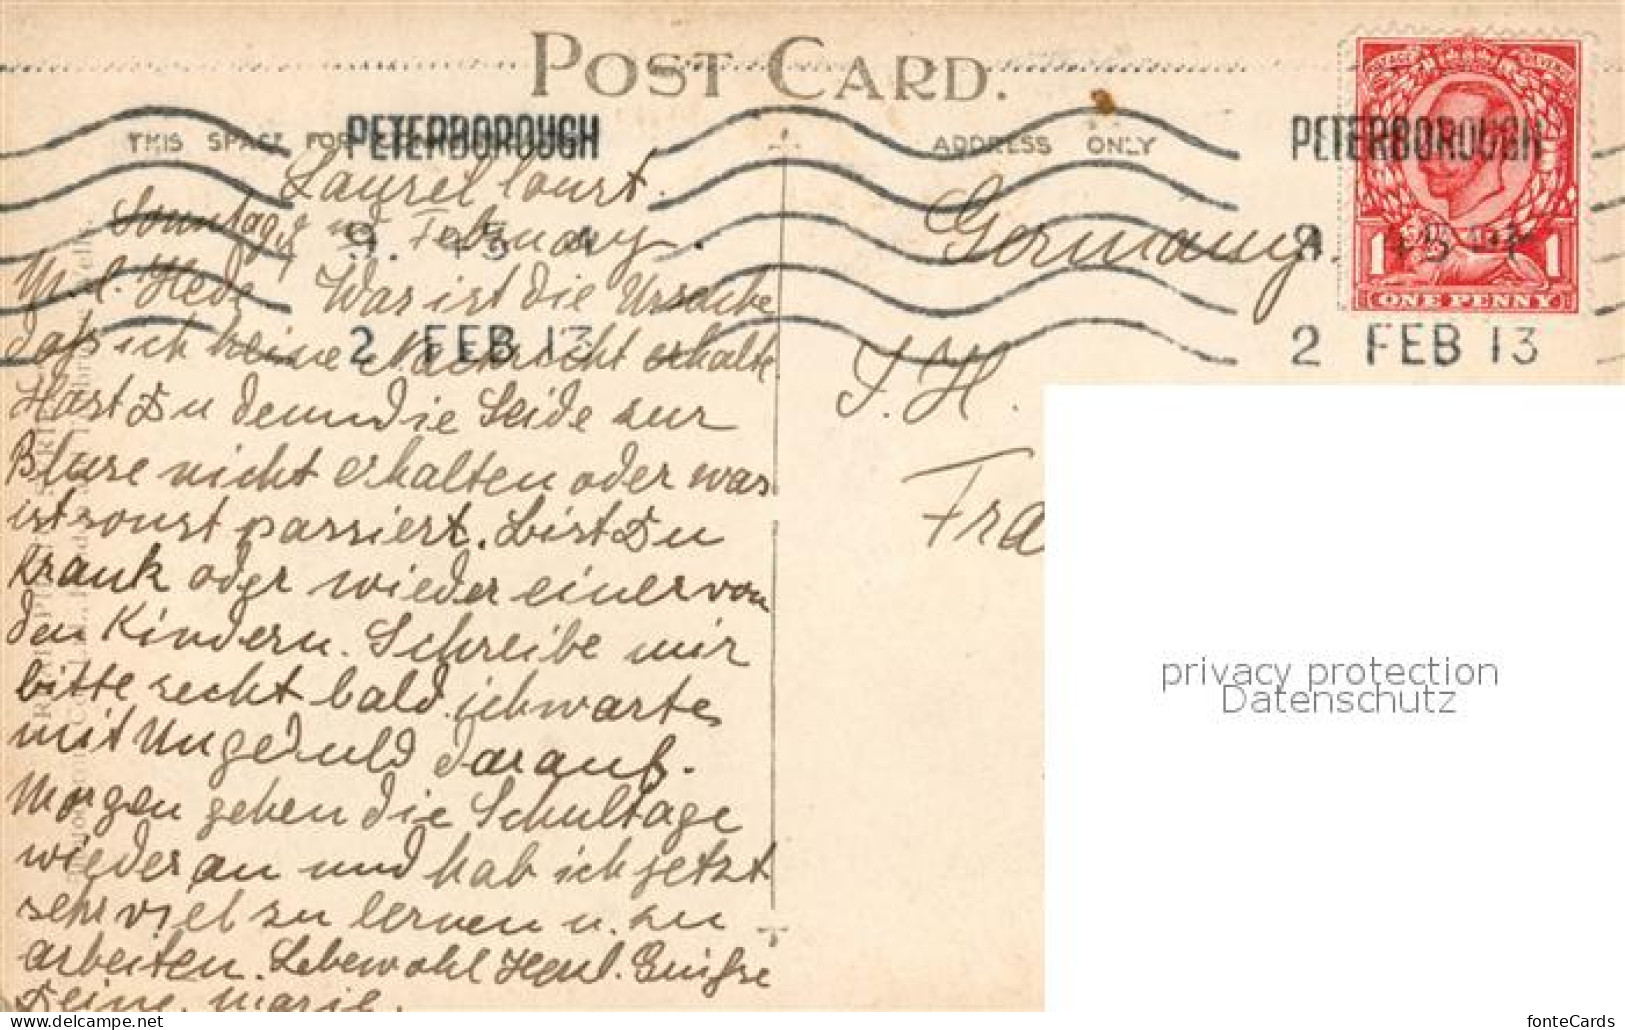 POST CARD.
THIS SPACE FOR
ADDRESS ONLY
PETERBOROUGH
9. 45 
2 FEB 13
PETERBOROUGH
2 FEB 13
1 1
ONE PENNY
Laurel Court.
Sonntag February.
M. l. Hede. Was ist die Ursache
daß ich keine Nachricht erhalte
Hast Du denn die Seide zur
Bluse nicht erhalten oder was
ist sonst passiert. Bist Du
krank oder wieder einer von
den Kindern. Schreibe mir
bitte recht bald. ich warte
mit Ungeduld darauf.
Morgen gehen die Schultage
wieder an und hab ich jetzt
sehr viel zu lernen u. zu
arbeiten. Lebewohl Grüße
Deine. Marie.
Germany.
F. H.
Fra
privacy protection
Datenschutz
www.delcampe.net/en_US/
fonteCards